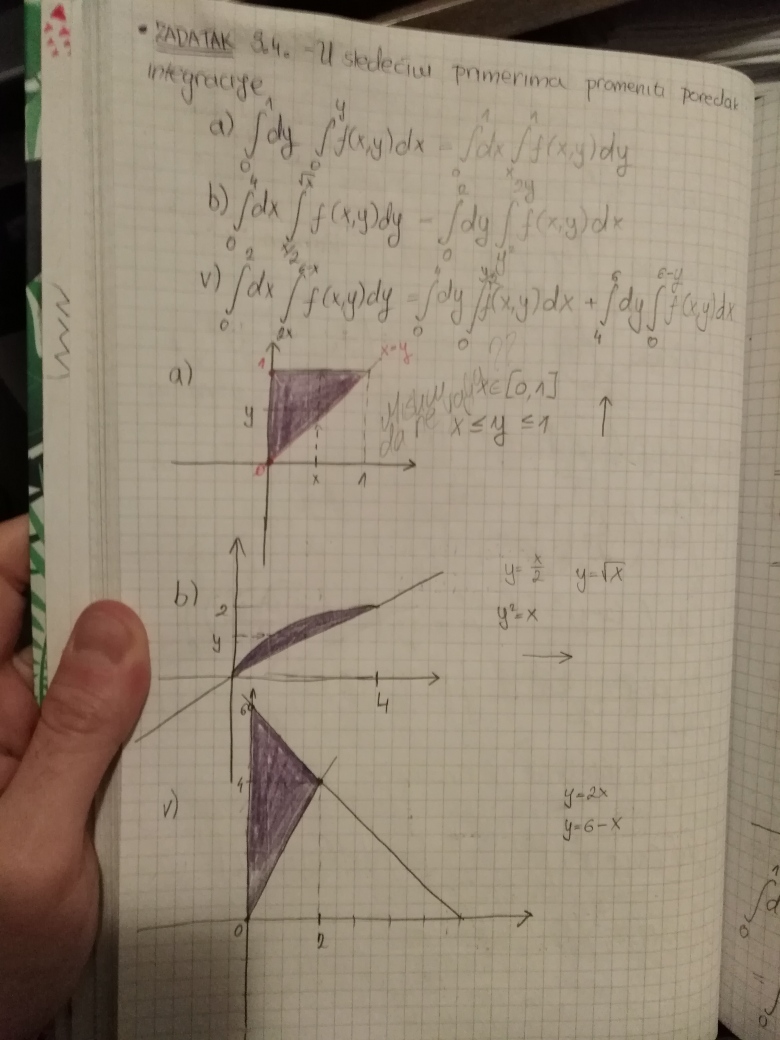 • ZADATAK 3.4. - U sledećim primerima promeniti poredak
integracije
a) ∫₀¹dy ∫₀^y f(x,y)dx = ∫₀¹dx ∫ₓ¹ f(x,y)dy
b) ∫₀⁴dx ∫_{x/2}^{√x} f(x,y)dy = ∫₀²dy ∫_{y²}^{2y} f(x,y)dx
v) ∫₀²dx ∫_{2x}^{6-x} f(x,y)dy = ∫₀⁴dy ∫₀^{y/2} f(x,y)dx + ∫₄⁶dy ∫₀^{6-y} f(x,y)dx
a)
1
x=y
y
x∈[0,1]
da ne x ≤ y ≤ 1
0
x 1
b)
y=x/2 y=√x
2
y²=x
y
4
6
4
v)
y=2x
y=6-x
0
2